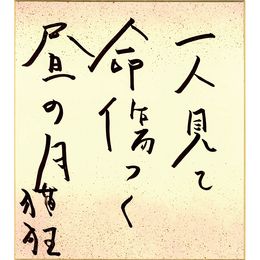 一人見て
命傷つく
昼の月